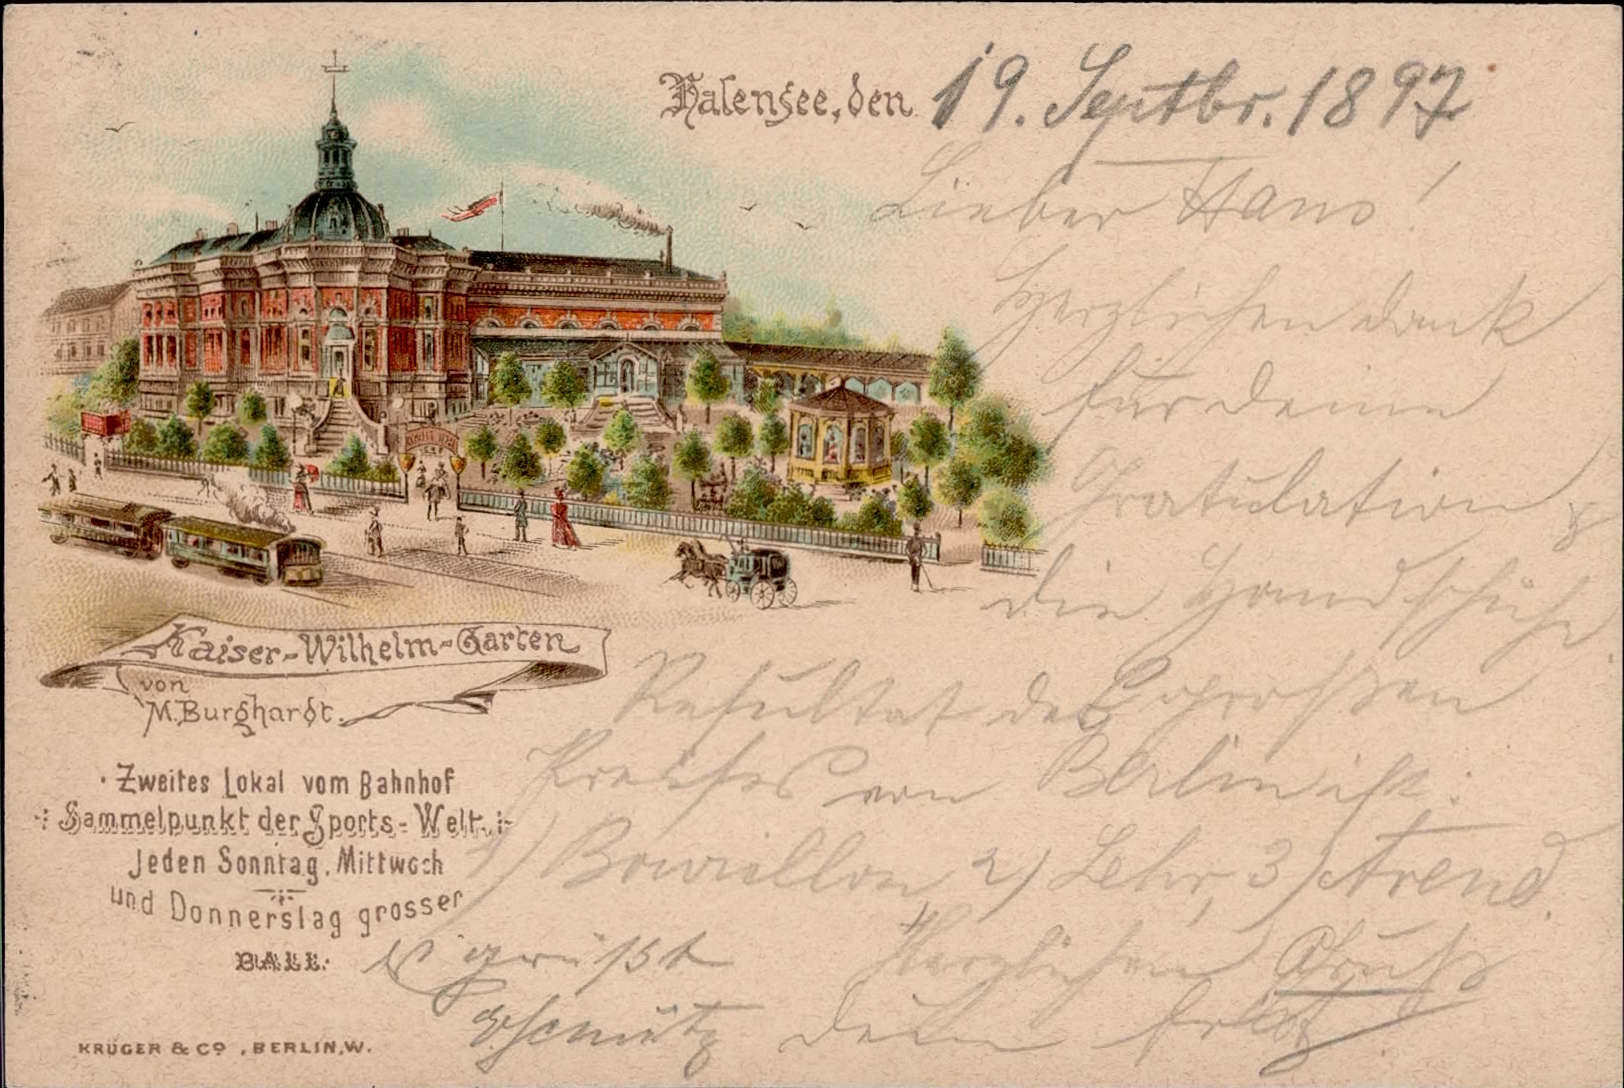 Halensee, den 19. Septbr. 1897
Lieber Hans!
Herzlichen Dank
für Deine
Gratulation &
die Handschuhe.
Resultat des großen
Preises von Berlin ist:
1) Bourillon 2) Lehr, 3) Arend.
Herzlichen Gruß
Es grüßt
Dein Fritz
Kaiser-Wilhelm-Garten
von
M. Burghardt.
Zweites Lokal vom Bahnhof
Sammelpunkt der Sports-Welt.
Jeden Sonntag, Mittwoch
und Donnerstag grosser
BALL.
KRÜGER & Co, BERLIN, W.